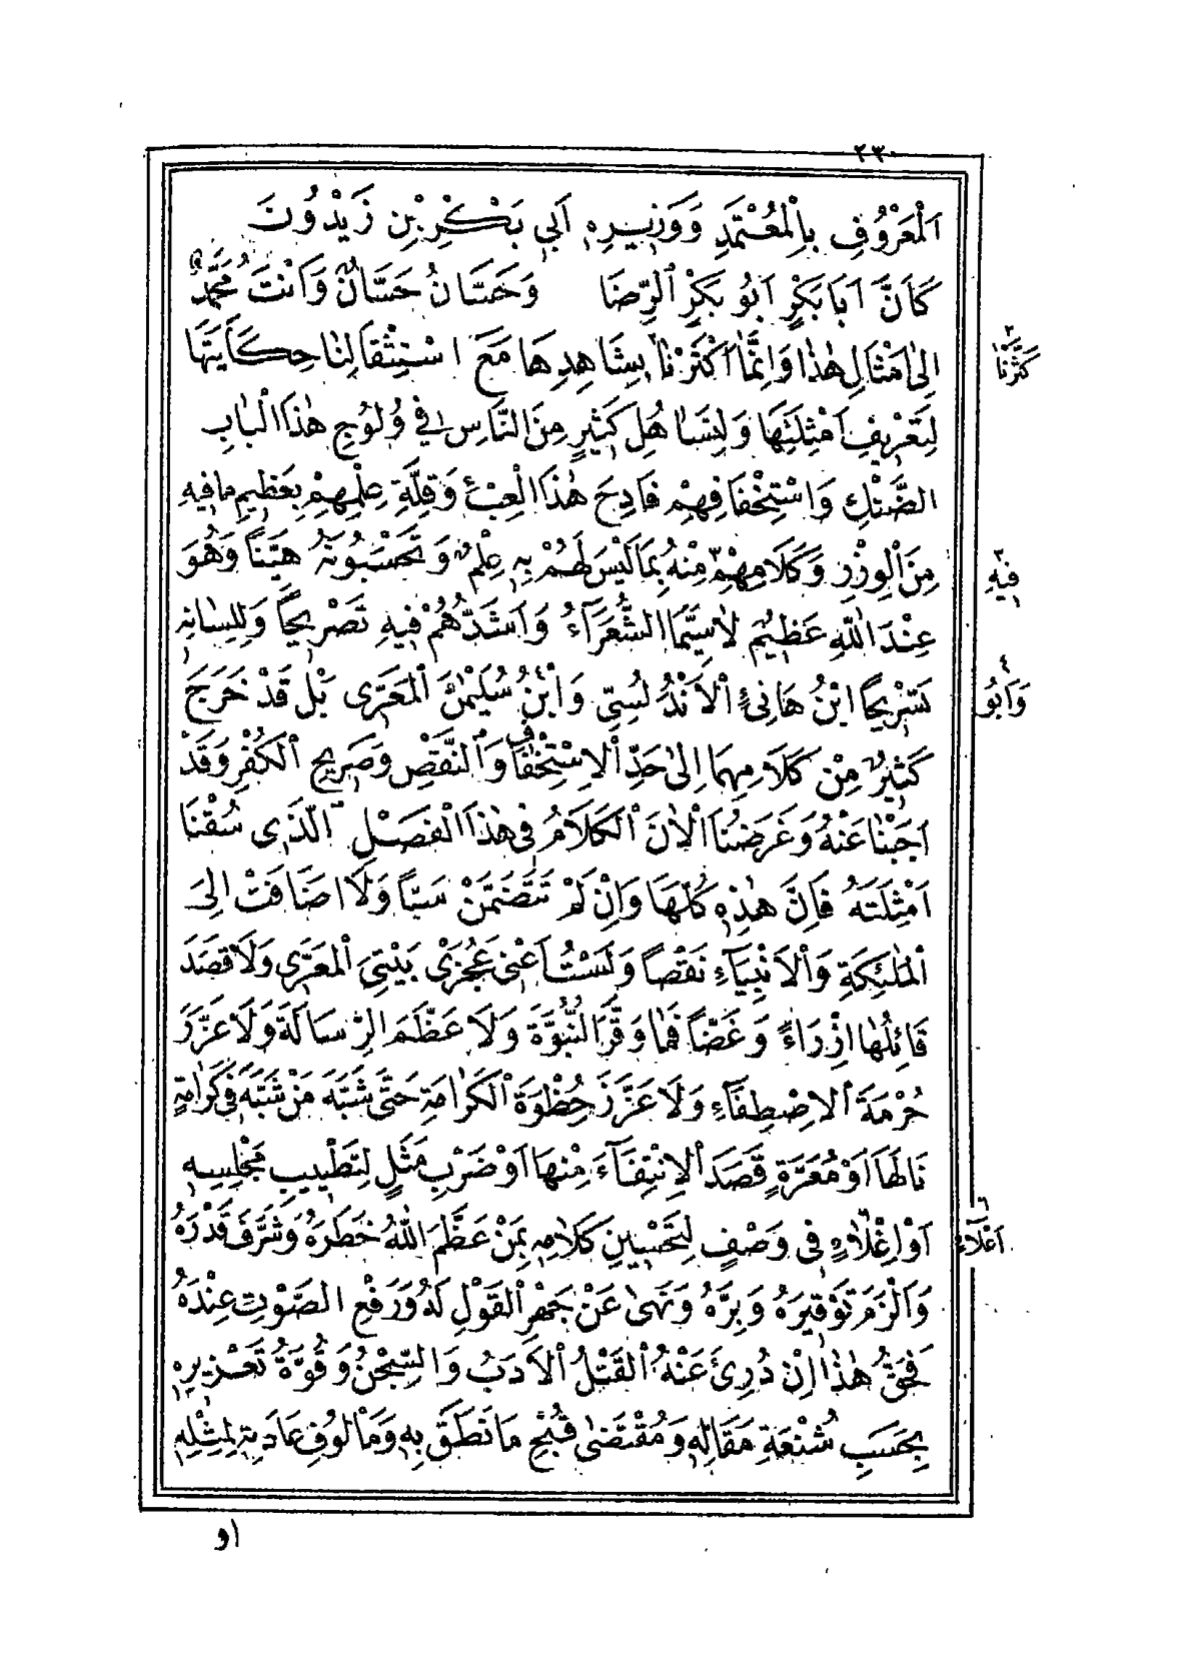 ٢٣٠
اَلْمَعْرُوفِ بِالْمُعْتَمَدِ وَوَزِيرِهِ اَبِي بَكْرِ بْنِ زَيْدُونَ
كَاَنَّ اَبَا بَكْرٍ اَبُو بَكْرِ الرِّضَا وَحَسَّانُ حَسَّانٌ وَاَنْتَ مُحَمَّدٌ
اِلٰى اَمْثَالِ هٰذَا وَاِنَّمَا اَكْثَرْنَا بِشَاهِدِهَا مَعَ اسْتِثْقَالِنَا حِكَايَتَهَا
كَثَّرْنَا
لِتَعْرِيفِ اَمْثِلَتِهَا وَلِتَسَاهُلِ كَثِيرٍ مِنَ النَّاسِ فِي وُلُوجِ هٰذَا الْبَابِ
الضَّنْكِ وَاسْتِخْفَافِهِمْ فَادِحَ هٰذَا الْعِبْءِ وَقِلَّةِ عِلْمِهِمْ بِعَظِيمِ مَا فِيهِ
مِنَ الْوِزْرِ وَكَلَامِهِمْ مِنْهُ بِمَا لَيْسَ لَهُمْ بِهِ عِلْمٌ وَتَحْسَبُونَهُ هَيِّنًا وَهُوَ
٣ فِيهِ
عِنْدَ اللّٰهِ عَظِيمٌ لَاسِيَّمَا الشُّعَرَآءُ وَاَشَدُّهُمْ فِيهِ تَصْرِيحًا وَلِلِسَانِهِ
تَسْرِيحًا ابْنُ هَانِئٍ الْاَنْدُلُسِيُّ وَابْنُ سُلَيْمٰنَ الْمَعَرِّى بَلْ قَدْ خَرَجَ
٤ وَاَبُو
كَثِيرٌ مِنْ كَلَامِهِمَا اِلٰى حَدِّ الْاِسْتِخْفَافِ وَالنَّقْصِ وَصَرِيحِ الْكُفْرِ وَقَدْ
اَجَبْنَا عَنْهُ وَغَرَضُنَا الْاٰنَ الْكَلَامُ فِى هٰذَا الْفَصْلِ الَّذِى سُقْنَا
اَمْثِلَتَهُ فَاِنَّ هٰذِهِ كُلَّهَا وَاِنْ لَمْ تَتَضَمَّنْ سَبًّا وَلَا اَضَافَتْ اِلَى
الْمَلٰئِكَةِ وَالْاَنْبِيَآءِ نَقْصًا وَلَسْتُ اَعْنِى عَجُزَىْ بَيْتَىِ الْمَعَرِّى وَلَا قَصَدَ
قَائِلُهَا اِزْرَاءً وَغَضًّا فَمَا وَقَّرَ النُّبُوَّةَ وَلَا عَظَّمَ الرِّسَالَةَ وَلَا عَزَّزَ
حُرْمَةَ الْاِصْطِفَآءِ وَلَا عَزَّزَ حُظْوَةَ الْكَرَامَةِ حَتّٰى شَبَّهَ مَنْ شَبَّهَ فِى كَرَامَةٍ
نَالَهَا اَوْ مَعَرَّةٍ قَصَدَ الْاِنْتِفَآءَ مِنْهَا اَوْ ضَرْبِ مَثَلٍ لِتَطْيِيبِ مَجْلِسِهِ
اَوْ اِغْلَاءٍ فِى وَصْفٍ لِتَحْسِينِ كَلَامِهِ بِمَنْ عَظَّمَ اللّٰهُ خَطَرَهُ وَشَرَّفَ قَدْرَهُ
٦ اَغْلَآءِ
وَاَلْزَمَ تَوْقِيرَهُ وَبِرَّهُ وَنَهٰى عَنْ جَهْرِ الْقَوْلِ لَهُ وَرَفْعِ الصَّوْتِ عِنْدَهُ
فَحَقُّ هٰذَا اِنْ دُرِئَ عَنْهُ الْقَتْلُ الْاَدَبُ وَالسِّجْنُ وَقُوَّةُ تَعْزِيرِهِ
بِحَسَبِ شُنْعَةِ مَقَالِهِ وَمُقْتَضٰى قُبْحِ مَا نَطَقَ بِهِ وَمَأْلُوفِ عَادَتِهِ لِمِثْلِهِ
او